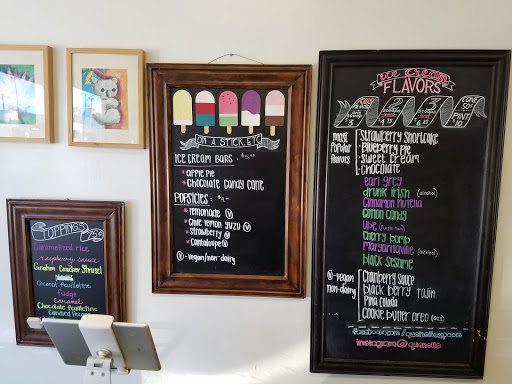 TOPPINGS 75¢
Caramelized rice
raspberry sauce
Graham Cracker Streusel
Coconut feuilletine
fudge
caramel
Chocolate feuilletine
Candied
ON A STICK, ETC
ICE CREAM BARS :
* APPLE PIE
* CHOCOLATE CANDY CANE
POPSICLES :
* LEMONADE V
* CHILE LEMON YUZU V
* STRAWBERRY V
* Cantaloupe V
V = vegan/non-dairy
ICE CREAM
FLAVORS
KIDS
2
3
CONE
50¢
PINT
10
MOST
POPULAR
FLAVORS
Strawberry Shortcake
Blueberry Pie
Sweet Cream
Chocolate
Earl Grey
Drunk Irish (alcohol)
Cinnamon Nutella
Cotton Candy
Ube
Cherry Bomb
Margaritaville (alcohol)
Black Sesame
V = vegan
non-dairy
Cranberry Sauce
Black Berry Tajin
Pina Colada
Cookie Butter Oreo
instagram@quenelle